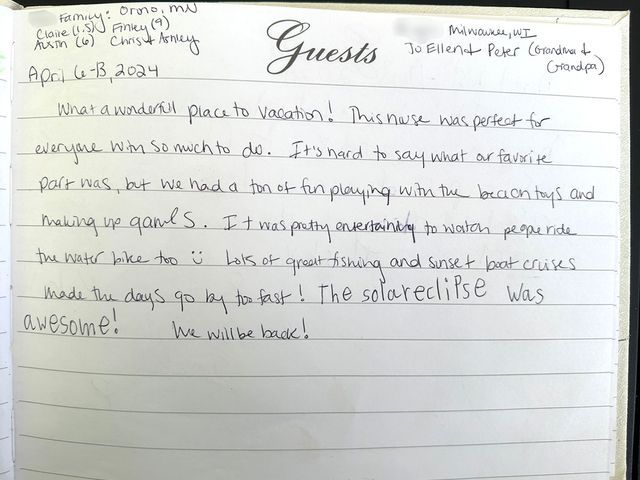 Family: Orono, MN
Claire (1.5) Finley (9)
Austin (6) Chris + Ashley
Guests
Milwaukee, WI
Jo Ellen + Peter (Grandma +
Grandpa)
April 6-13, 2024
What a wonderful place to vacation! This house was perfect for
everyone with so much to do. It's hard to say what our favorite
part was, but we had a ton of fun playing with the beach toys and
making up games. It was pretty entertaining to watch people ride
the water bike too ☺ Lots of great fishing and sunset boat cruises
made the days go by too fast! The solar eclipse was
awesome! We will be back!